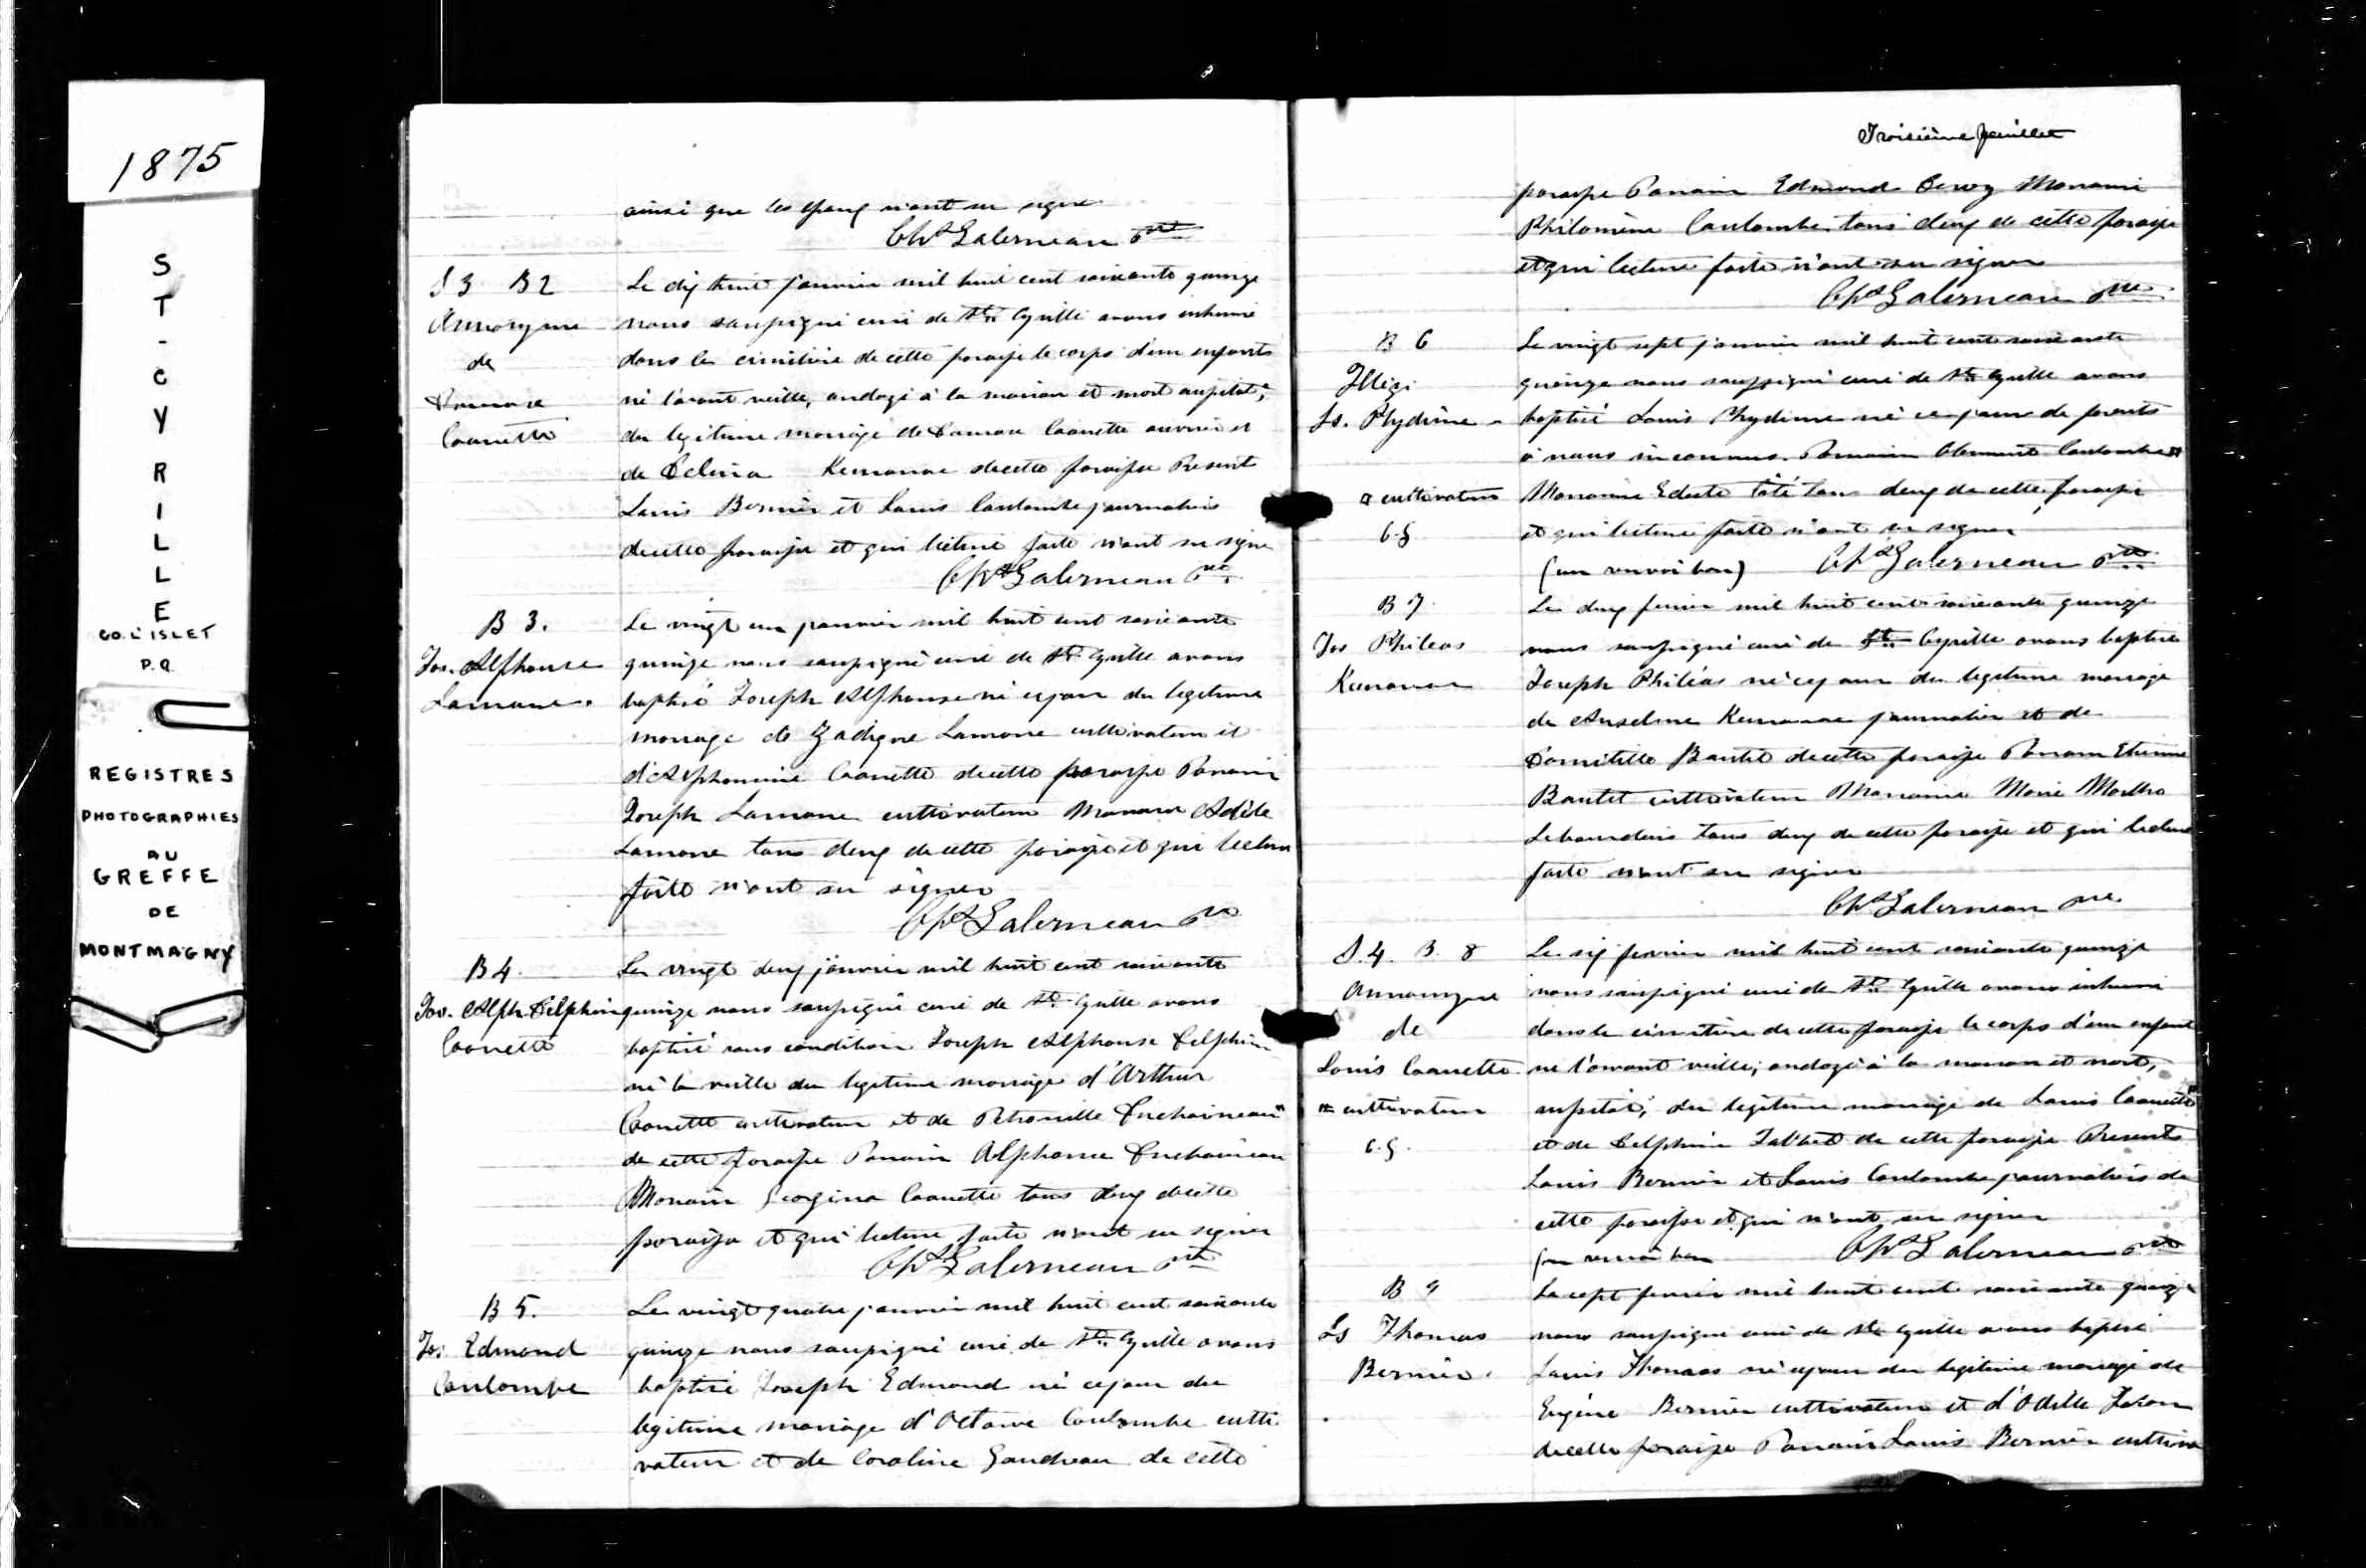 1875
ST-CYRILLE
CO. L'ISLET
P.Q.
REGISTRES
PHOTOGRAPHIES
AU
GREFFE
DE
MONTMAGNY
ainsi que les n'ont su signer
Chs Galerneau Ptre
S 3 B 2
Annonyme
de
Damase
Caouette
Le dix huit janvier mil huit cent soixante quinze
nous soussigné curé de St. Cyrille avons inhumé
dans le cimetière de cette paroisse le corps d'un enfant
né l'avant veille, ondoyé à la maison et mort aussitôt,
du legitime mariage de Damase Caouette ouvrier et
de Delina Kemoner de cette paroisse Present
Louis Bernier et Louis Coulombe journaliers
de cette paroisse et qui lecture faite n'ont su signer
Chs Galerneau Ptre
B 3.
Jos. Alphonse
Lamarre.
Le vingt un janvier mil huit cent soixante
quinze nous soussigné curé de St. Cyrille avons
baptisé Joseph Alphonse né ce jour du legitime
mariage de Lamarre cultivateur et
d'Alphonsine Caouette de cette paroisse Parrain
Joseph Lamarre cultivateur Marraine Adèle
Lamarre tous deux de cette paroisse et qui lecture
faite n'ont su signer
Chs Galerneau Ptre
B 4.
Jos. Alph. Delphin
Caouette
Le vingt deux janvier mil huit cent soixante
quinze nous soussigné curé de St. Cyrille avons
baptisé sous condition Joseph Alphonse Delphin
né la veille du legitime mariage d'Arthur
Caouette cultivateur et de Duchaineau
de cette paroisse Parrain Alphonse Duchaineau
Marraine Georgina Caouette tous deux de cette
paroisse et qui lecture faite n'ont su signer
Chs Galerneau Ptre
B 5.
Jos. Edmond
Coulombe
Le vingt quatre janvier mil huit cent soixante
quinze nous soussigné curé de St. Cyrille avons
baptisé Joseph Edmond né ce jour du
legitime mariage d'Octave Coulombe culti
vateur et de Caroline Gaudreau de cette
Troisième feuillet
paroisse Parrain Edmond Marraine
Philomène Coulombe tous deux de cette paroisse
et qui lecture faite n'ont su signer
Chs Galerneau Ptre
B 6
Illégi.
Ls. Phydime
¤ cultivateur
C. G.
Le vingt sept janvier mil huit cent soixante
quinze nous soussigné curé de St. Cyrille avons
baptisé Louis Phydime né ce jour de parents
à nous inconnus. Parrain Clement Coulombe ¤
Marraine tous deux de cette paroisse
et qui lecture faite n'ont su signer
(un renvoi bon) Chs Galerneau Ptre
B 7.
Jos Phileas
Kemoner
Le deux fevrier mil huit cent soixante quinze
nous soussigné curé de St. Cyrille avons baptisé
Joseph Philéas né ce jour du legitime mariage
de Anselme Kemoner journalier et de
Domitille Boutet de cette paroisse Parrain Etienne
Boutet cultivateur Marraine Marie Martha
Lebourdais tous deux de cette paroisse et qui lecture
faite n'ont su signer
Chs Galerneau Ptre
S. 4. B. 8
Annonyme
de
Louis Caouette
¤ cultivateur
C. G.
Le six fevrier mil huit cent soixante quinze
nous soussigné curé de St. Cyrille avons inhumé
dans le cimetière de cette paroisse le corps d'un enfant
né l'avant veille, ondoyé à la maison et mort,
aussitôt, du legitime mariage de Louis Caouette ¤
et de Delphine Talbot de cette paroisse Presents
Louis Bernier et Louis Coulombe journaliers de
cette paroisse et qui n'ont su signer
(un renvoi bon Chs Galerneau Ptre
B 9
Ls Thomas
Bernier.
Le sept fevrier mil huit cent soixante quinze
nous soussigné curé de St. Cyrille avons baptisé
Louis Thomas né ce jour du legitime mariage de
Eugène Bernier cultivateur et d'Odille
de cette paroisse Parrain Louis Bernier cultiva